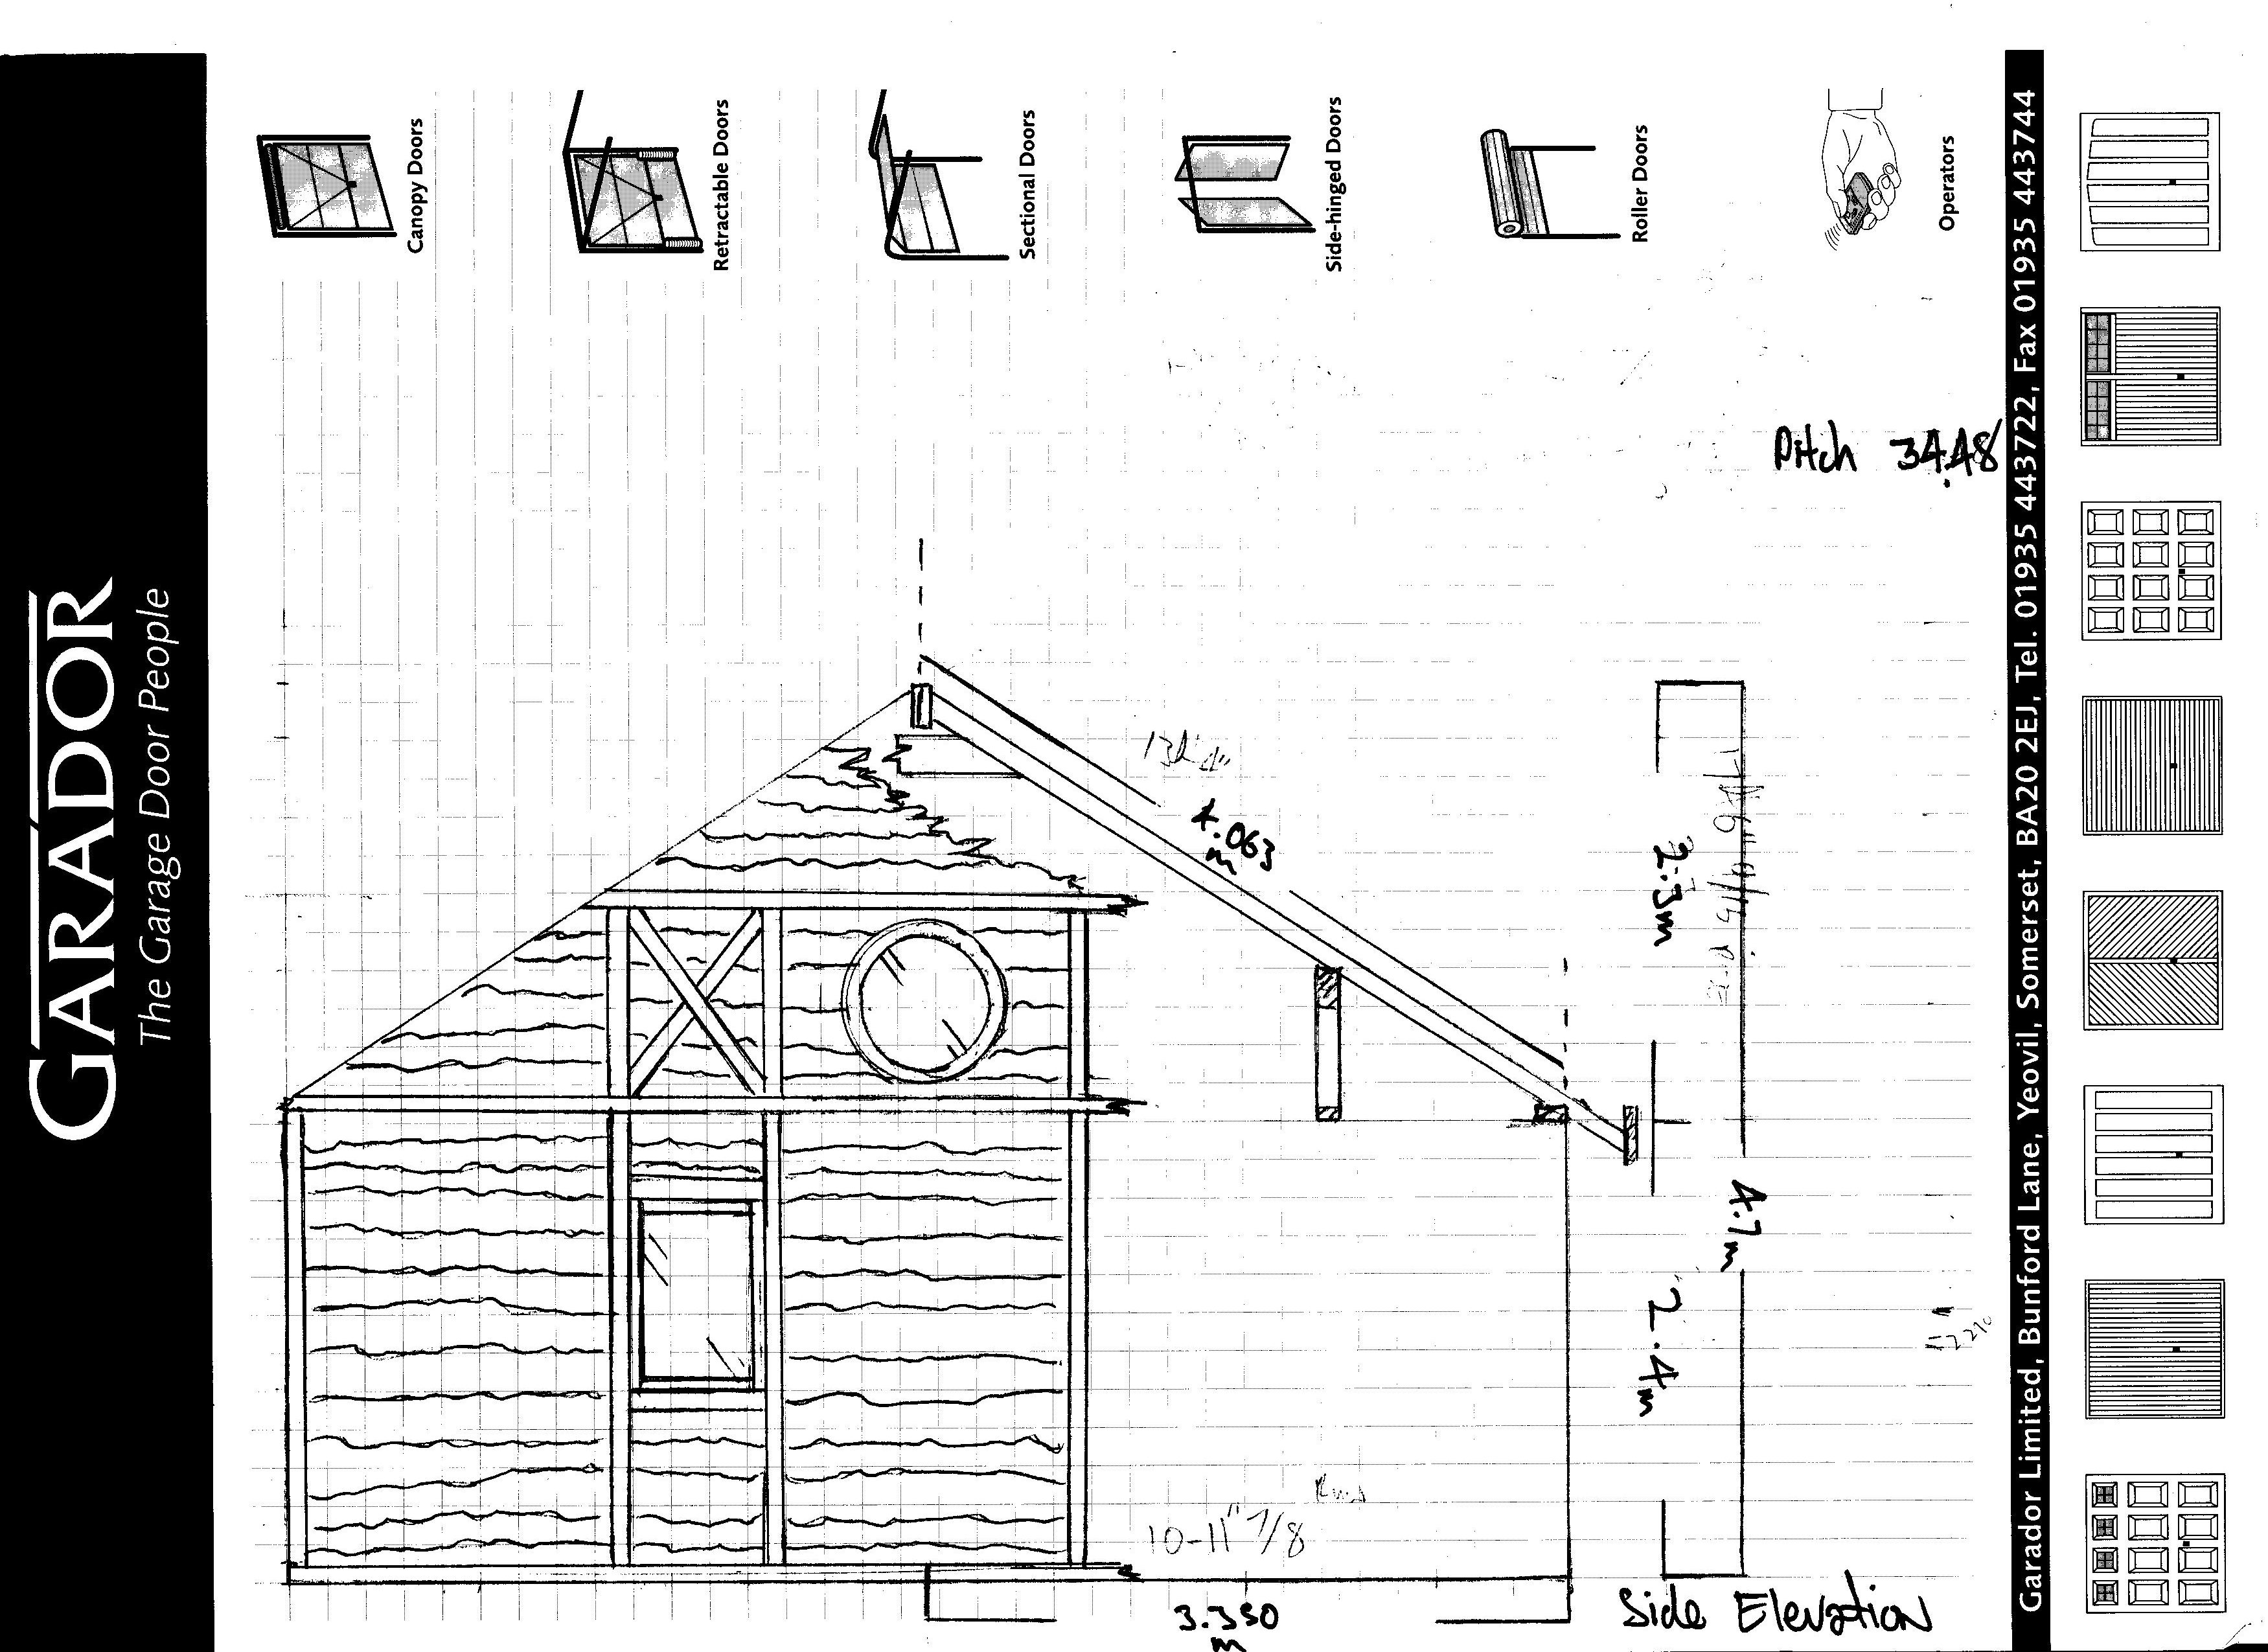 GARADOR
The Garage Door People
Canopy Doors
Retractable Doors
Sectional Doors
Side-hinged Doors
Roller Doors
Operators
Pitch 34.48
4.063
m
2.3m
4.7
m
2.4m
10-11" 7/8
3.350
m
Side Elevation
Garador Limited, Bunford Lane, Yeovil, Somerset, BA20 2EJ, Tel. 01935 443722, Fax 01935 443744